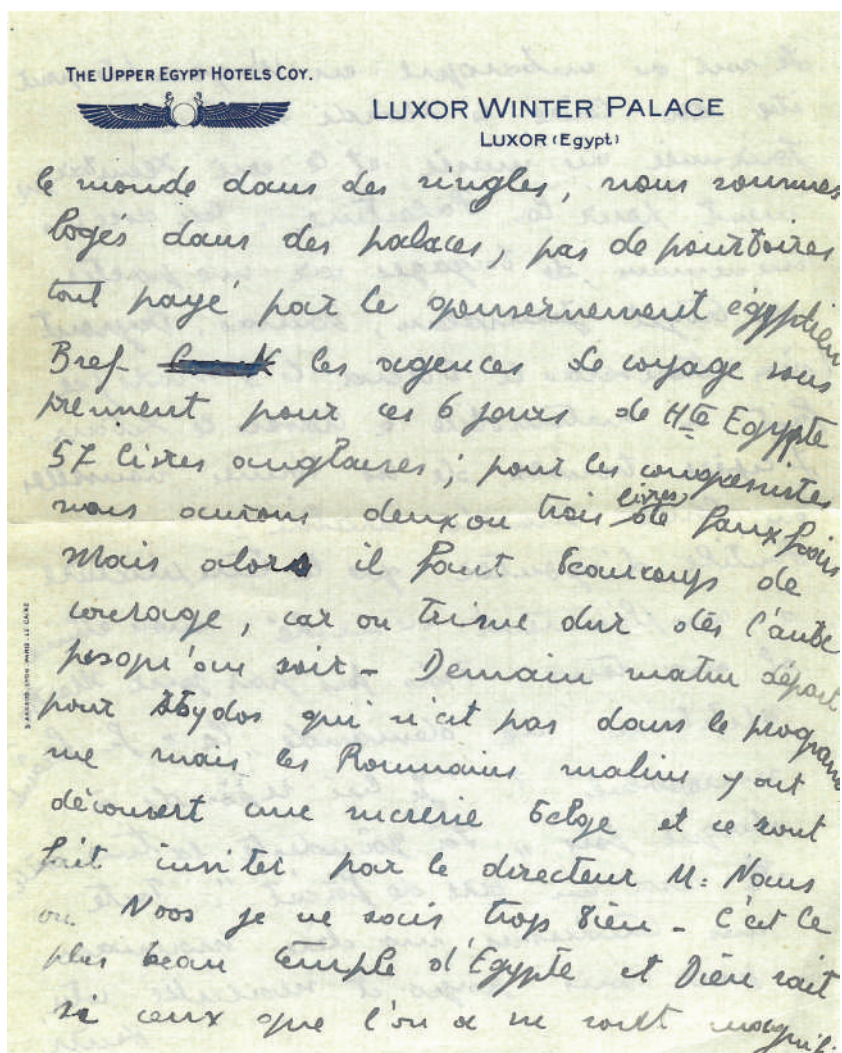 THE UPPER EGYPT HOTELS COY.
LUXOR WINTER PALACE
LUXOR (Egypt)
le monde dans des singles, nous sommes
logés dans des palaces, pas de pourboires
tout payé par le gouvernement égyptien
Bref les agences de voyage vous
prennent pour ces 6 jours de Hte Egypte
57 livres anglaises; pour les congressistes
nous aurons deux ou trois livres de faux frais
Mais alors il faut beaucoup de
courage, car on trime dur dès l'aube
jusqu'au soir - Demain matin départ
pour Abydos qui n'est pas dans le program
me mais les Roumains malins y ont
découvert une sucrerie belge et ce sont
fait inviter par le directeur M: Naus
ou Noos je ne sais trop bien - C'est le
plus beau temple d'Égypte et Dieu sait
si ceux que l'on a ne sont magnifi